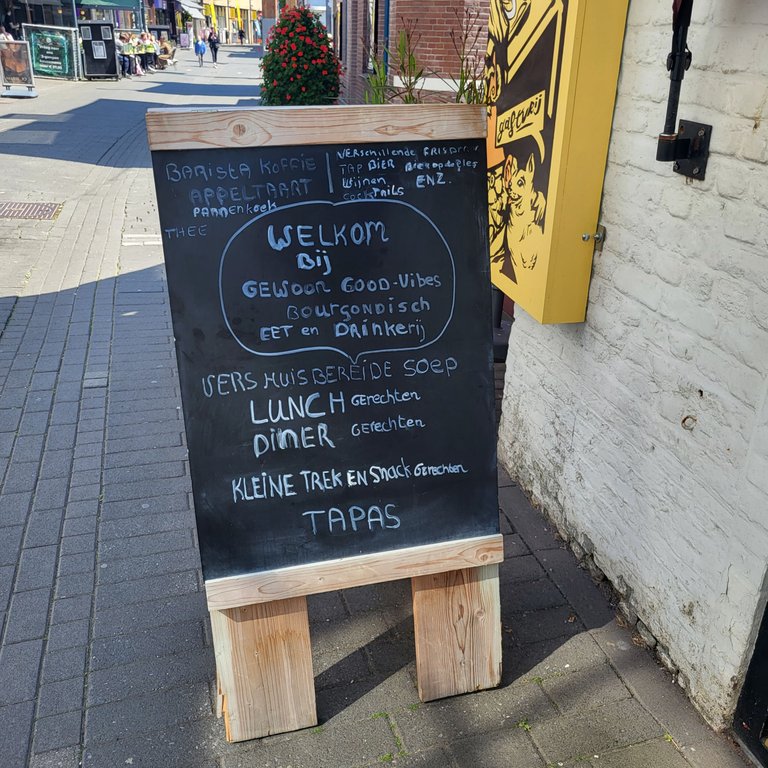 BARISTA KOFFIE
APPELTAART
PANNENKOEK
THEE
VERSCHILLENDE
TAP BIER
Wijnen ENZ.
COCKTAILS
WELKOM
Bij
GEWOON GOOD-Vibes
BOURGONDISCH
EET en DRINKERIJ
VERS HUISBEREIDE SOEP
LUNCH GERECHTEN
DINER GERECHTEN
KLEINE TREK EN SNACK GERECHTEN
TAPAS